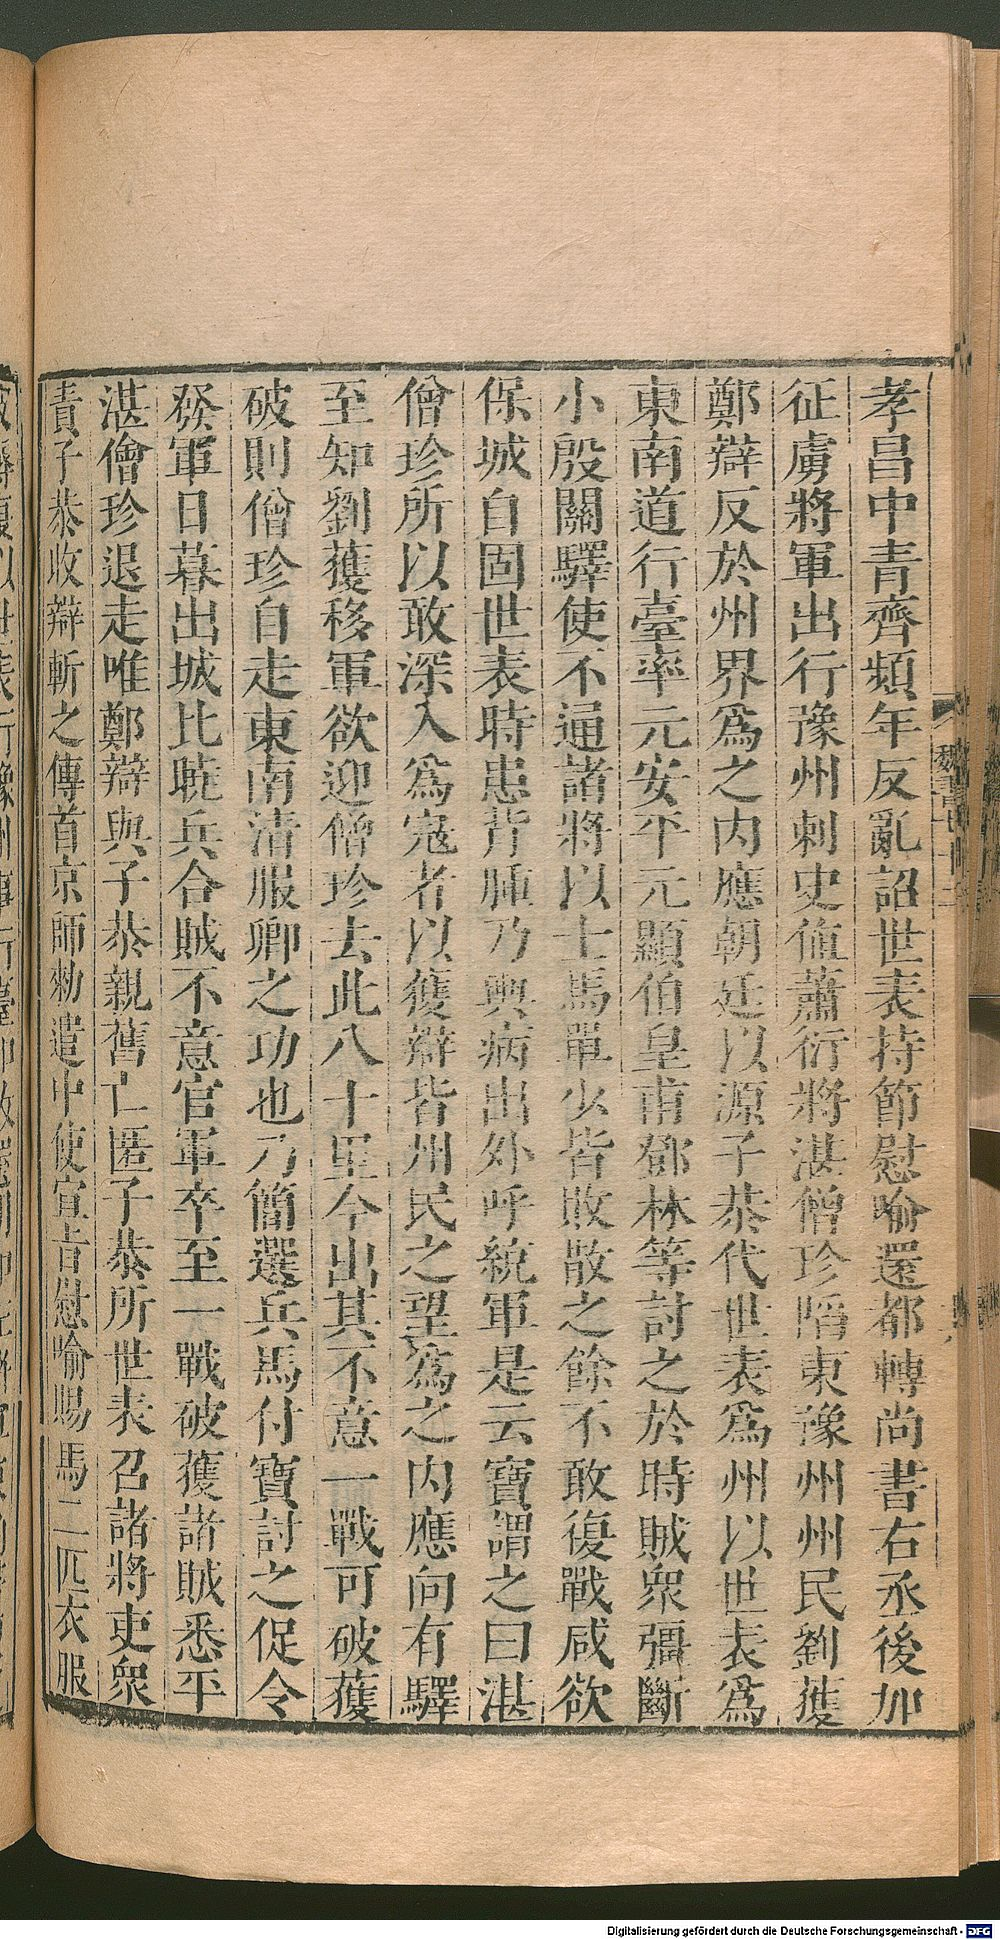 孝昌中青齊頻年反亂詔世表持節慰喻還都轉尚書右丞後加
征虜將軍出行豫州刺史値蕭衍將湛僧珍陷東豫州州民劉獲
鄭辯反於州界爲之内應朝廷以源子恭代世表爲州以世表爲
東南道行臺率元安平元顯伯皇甫鄧林等討之於時賊衆彊斷
小殷關驛使不通諸將以士馬單少皆敗散之餘不敢復戰咸欲
保城自固世表時患背腫乃輿病出外呼統軍是云寶謂之曰湛
僧珍所以敢深入爲寇者以獲辯皆州民之望爲之内應向有驛
至知劉獲移軍欲迎僧珍去此八十里今出其不意一戰可破獲
破則僧珍自走東南清服卿之功也乃簡選兵馬付寶討之促令
發軍日暮出城比曉兵合賊不意官軍卒至一戰破獲諸賊悉平
湛僧珍退走唯鄭辯與子恭親舊亡匿子恭所世表召諸將吏衆
責子恭收辯斬之傳首京師勑遣中使宣旨慰喻賜馬二匹衣服
魏書
Digitalisierung gefördert durch die Deutsche Forschungsgemeinschaft - DFG